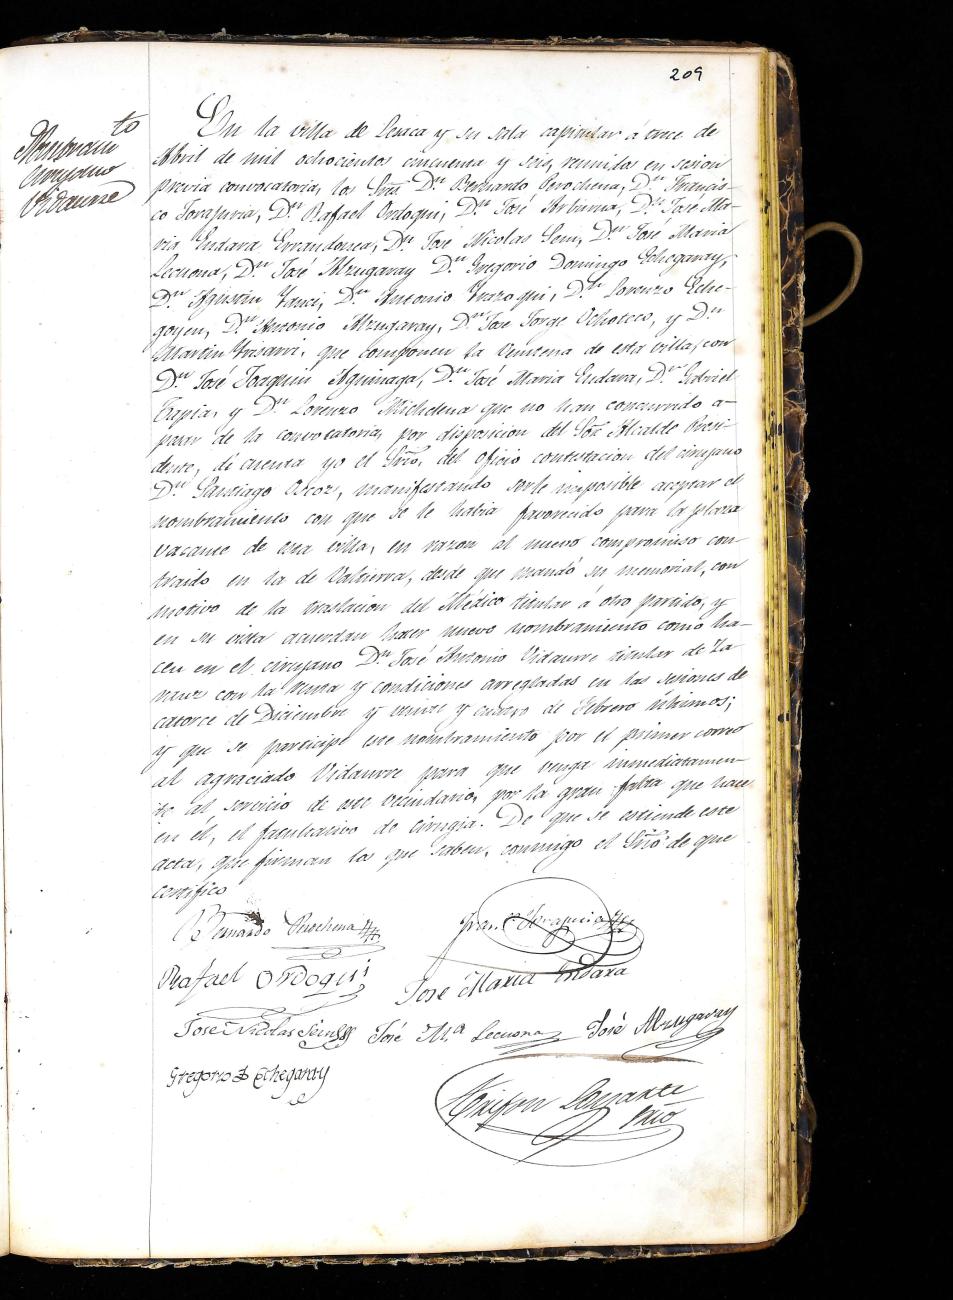 209
Nombramto
Cirujano
Vidaurre
En la villa de Lesaca y su sala capitular á once de
Abril de mil ochocientos cincuenta y seis, reunidos en sesion
previa convocatoria, los Sres Dn Bernardo Perochena, Dn Francis-
co Torajuria, Dn Rafael Ordoqui, Dn José Arburua, Dn José Ma-
ria Endara Errandonea, Dn José Nicolas Sein, Dn José Maria
Lecuona, Dn José Alzugaray Dn Gregorio Domingo Echegaray,
Dn Agustin Yanci, Dn Antonio Yrazoqui, Dn Lorenzo Eche-
goyen, Dn Antonio Alzugaray, Dn José Jorge Ochoteco, y Dn
Martin Yrisarri, que componen la Veintena de esta villa, con
Dn José Joaquin Aguinaga, Dn José Maria Endara, Dn Gabriel
Tapia, y Dn Lorenzo Michelena que no han concurrido a-
pesar de la convocatoria, por disposicion del Sor Alcalde Presi-
dente, dí cuenta yo el Srio, del oficio contestacion del cirujano
Dn Santiago Oscoz, manifestando serle imposible aceptar el
nombramiento con que se le habia favorecido para la plaza
vacante de esta villa, en razon al nuevo compromiso con-
traido en la de Valtierra, desde que mandó su memorial, con
motivo de la traslacion del Médico titular á otro partido, y
en su vista acuerdan hacer nuevo nombramiento como ha-
cen en el cirujano Dn José Antonio Vidaurre titular de Za-
rauz con la renta y condiciones arregladas en las sesiones de
catorce de Diciembre y veinte y cuatro de Febrero últimos;
y que se participe este nombramiento por el primer correo
al agraciado Vidaurre para que venga inmediatamen-
te al servicio de este vecindario, por la gran falta que hace
en él, el facultativo de cirugia. De que se estiende este
acta, que firman los que saben, conmigo el Srio de que
certifico
Bernardo Perochena Fran.co Torajuria
Rafael Ordoqui José Maria Endara
José Nicolas Sein José Ma Lecuona José Alzugaray
Gregorio D Echegaray
Srio